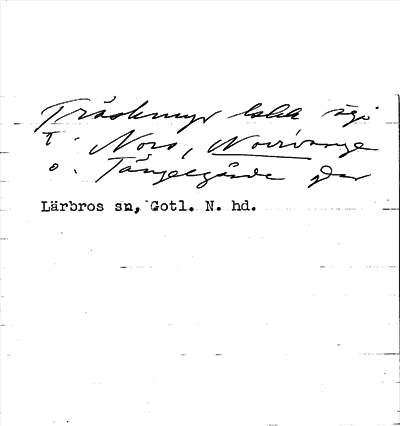 Träskmyr lilla äga
t. Nors, Norrvange
o. Tängelgårda gdar
Lärbros sn, Gotl. N. hd.